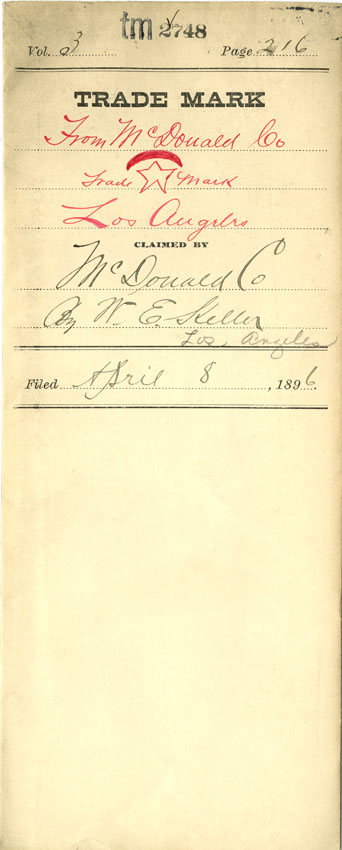 tm 2748
Vol. 3 Page 216
TRADE MARK
From McDonald Co
Trade Mark
Los Angeles
CLAIMED BY
McDonald C
By W. E. Keller
Los Angeles
Filed April 8, 1896.